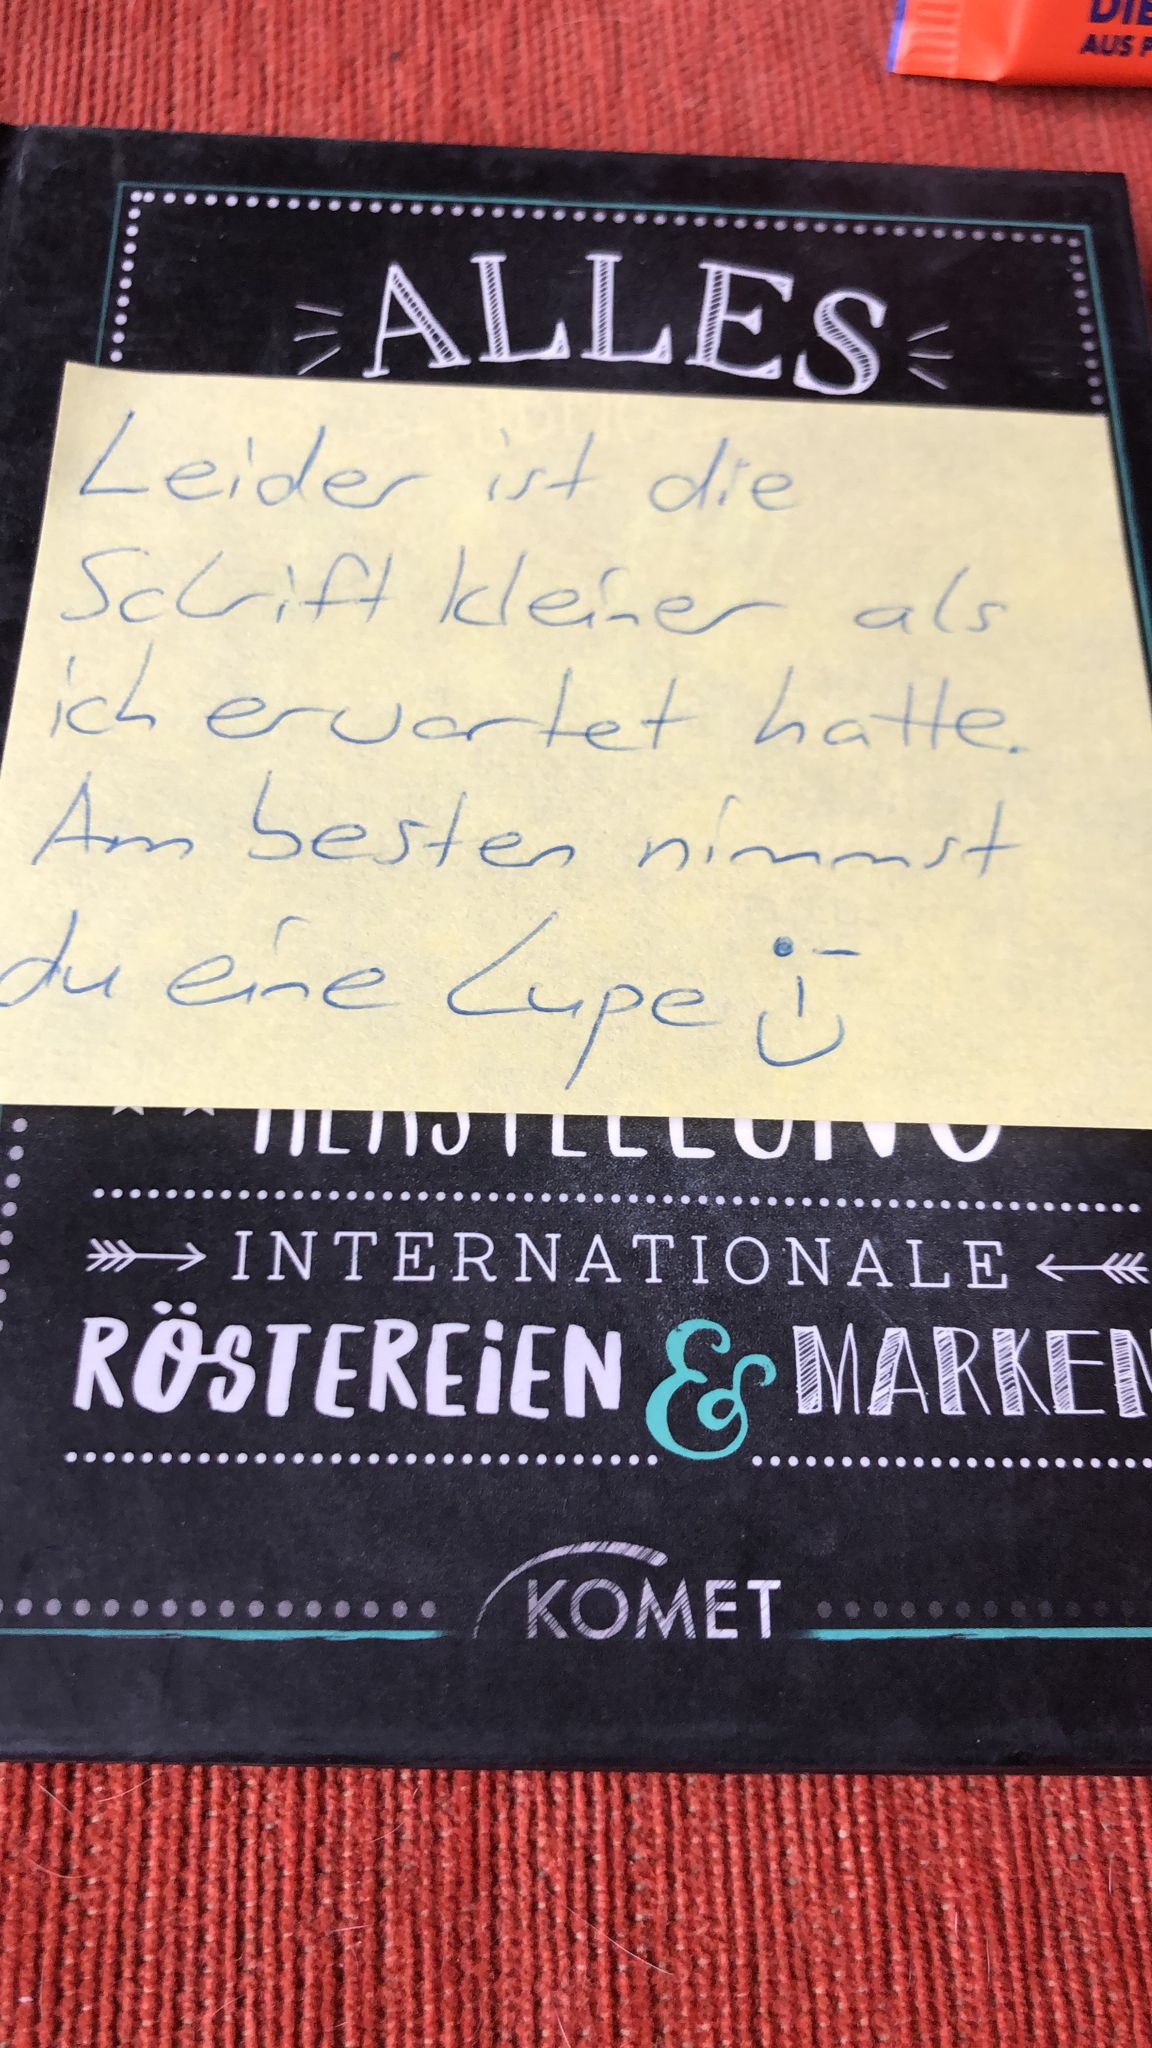 DIE
AUS
ALLES
Leider ist die
Schrift kleiner als
ich erwartet hatte.
Am besten nimmst
du eine Lupe
HERSTELLUNG
INTERNATIONALE
RÖSTEREIEN & MARKEN
KOMET